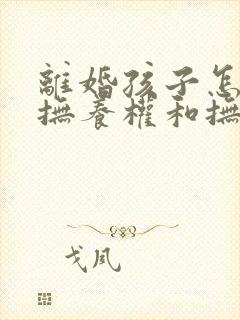 離婚孩子怎
撫養權和撫
戈風